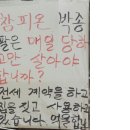 참피온 박종
팔은 매일 당하
고만 살아야
합니까?
전세 계약을 하고
사용하고
있습니다 억울합